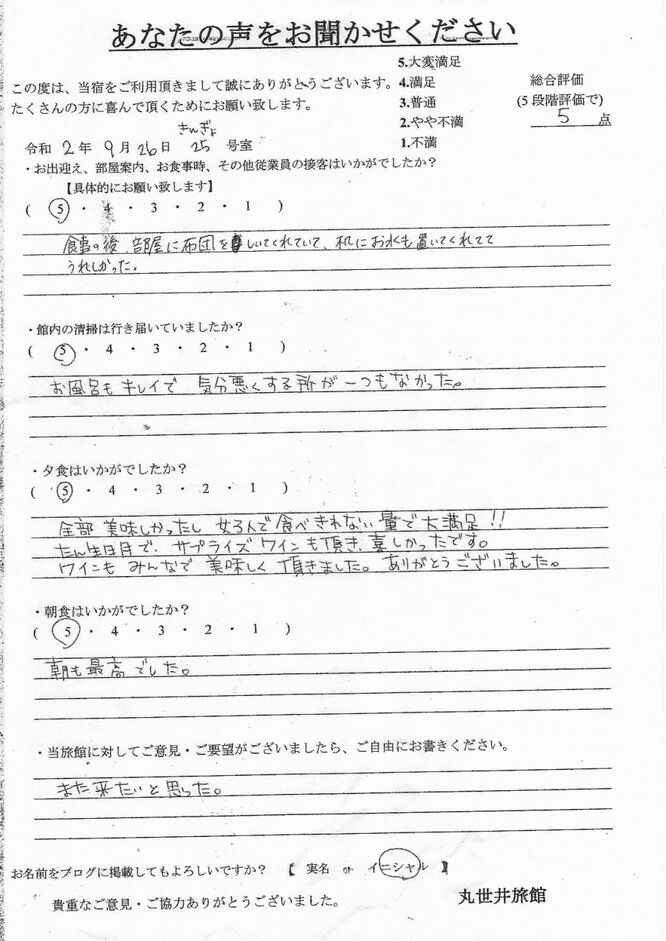 あなたの声をお聞かせください
5.大変満足
この度は、当宿をご利用頂きまして誠にありがとうございます。
4.満足
総合評価
たくさんの方に喜んで頂くためにお願い致します。
3.普通
(5段階評価で)
2.やや不満
5 点
きんぎょ
令和 2 年 9 月 26 日 25 号室
1.不満
・お出迎え、部屋案内、お食事時、その他従業員の接客はいかがでしたか?
【具体的にお願い致します】
( 5 ・ 4 ・ 3 ・ 2 ・ 1 )
食事の後、部屋に布団をしいてくれていて、机にお水も置いてくれてて
うれしかった。
・館内の清掃は行き届いていましたか?
( 5 ・ 4 ・ 3 ・ 2 ・ 1 )
お風呂もキレイで 気分悪くする所が一つもなかった。
・夕食はいかがでしたか?
( 5 ・ 4 ・ 3 ・ 2 ・ 1 )
全部 美味しかったし 女3人で食べきれない量で大満足!!
たん生日月で、サプライズワインも頂き、喜しかったです。
ワインも みんなで 美味しく 頂きました。ありがとうございました。
・朝食はいかがでしたか?
( 5 ・ 4 ・ 3 ・ 2 ・ 1 )
朝も最高でした。
・当旅館に対してご意見・ご要望がございましたら、ご自由にお書きください。
また来たいと思った。
お名前をブログに掲載してもよろしいですか? 【 実名 or イニシャル 】
貴重なご意見・ご協力ありがとうございました。
丸世井旅館